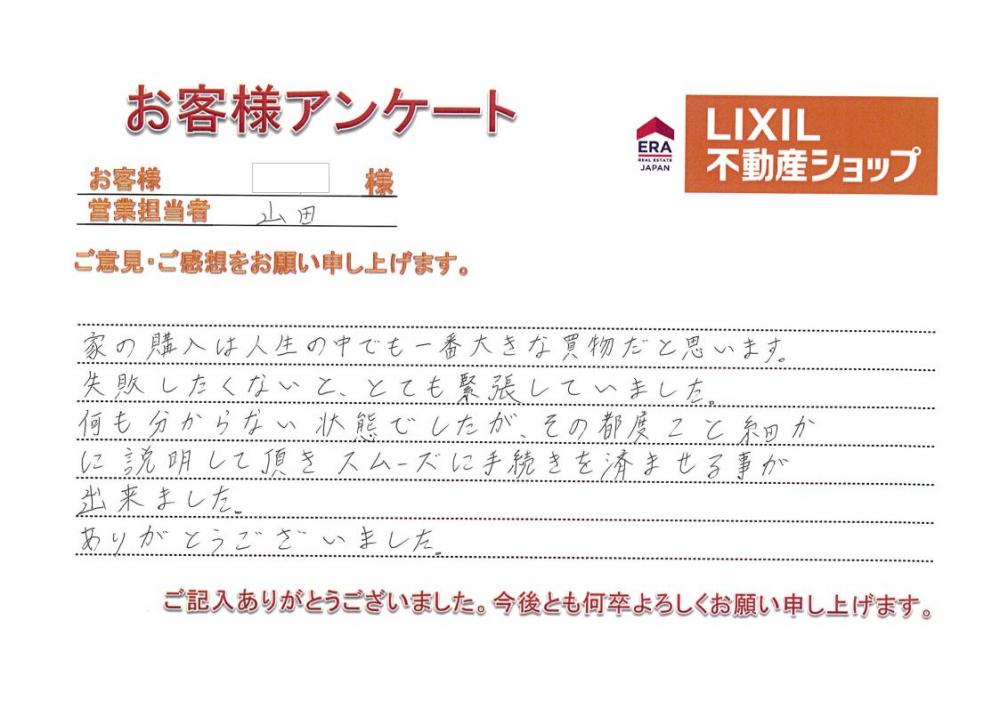 お客様アンケート
ERA
REAL ESTATE
JAPAN
LIXIL
不動産ショップ
お客様 様
営業担当者 山田
ご意見・ご感想をお願い申し上げます。
家の購入は人生の中でも一番大きな買物だと思います。
失敗したくないと、とても緊張していました。
何も分からない状態でしたが、その都度こと細か
に説明して頂きスムーズに手続きを済ませる事が
出来ました。
ありがとうございました。
ご記入ありがとうございました。今後とも何卒よろしくお願い申し上げます。